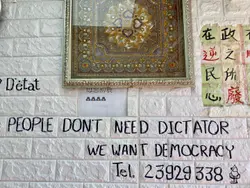 政之所廢
在逆民心
D'état
PEOPLE DONT NEED DICTATOR
WE WANT DEMOCRACY
Tel. 23929338